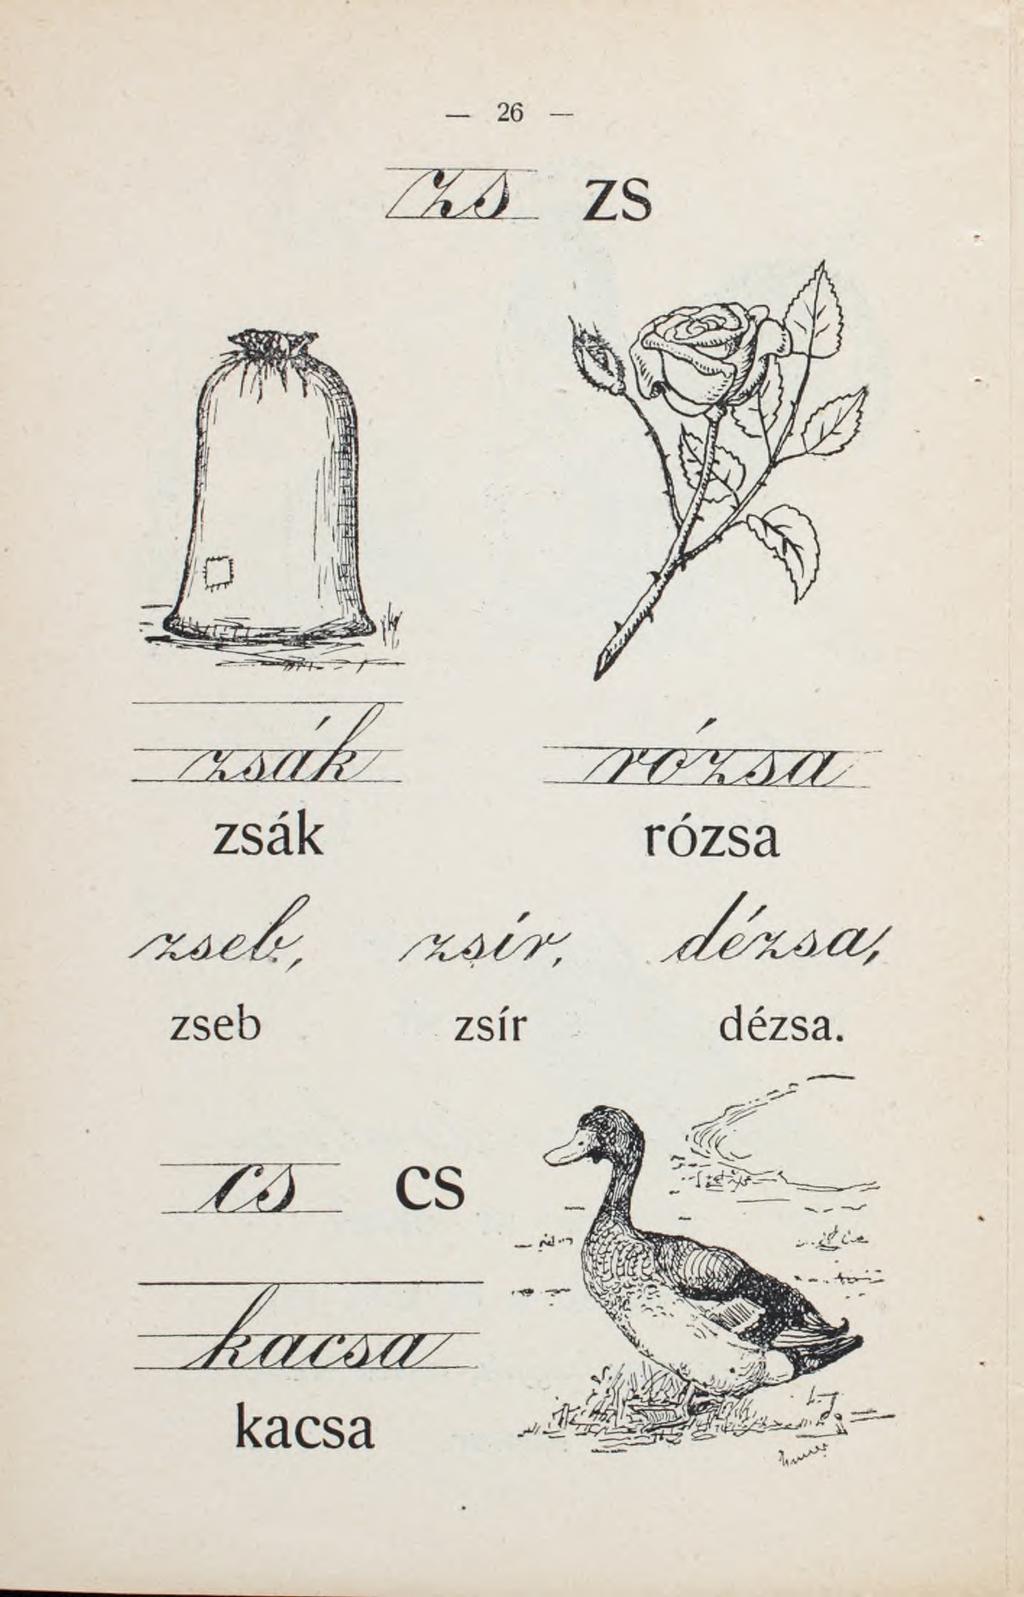 — 26 —
zs zs
zsák rózsa
zsák rózsa
zseb, zsír, dézsa,
zseb zsír dézsa.
cs cs
kacsa
kacsa